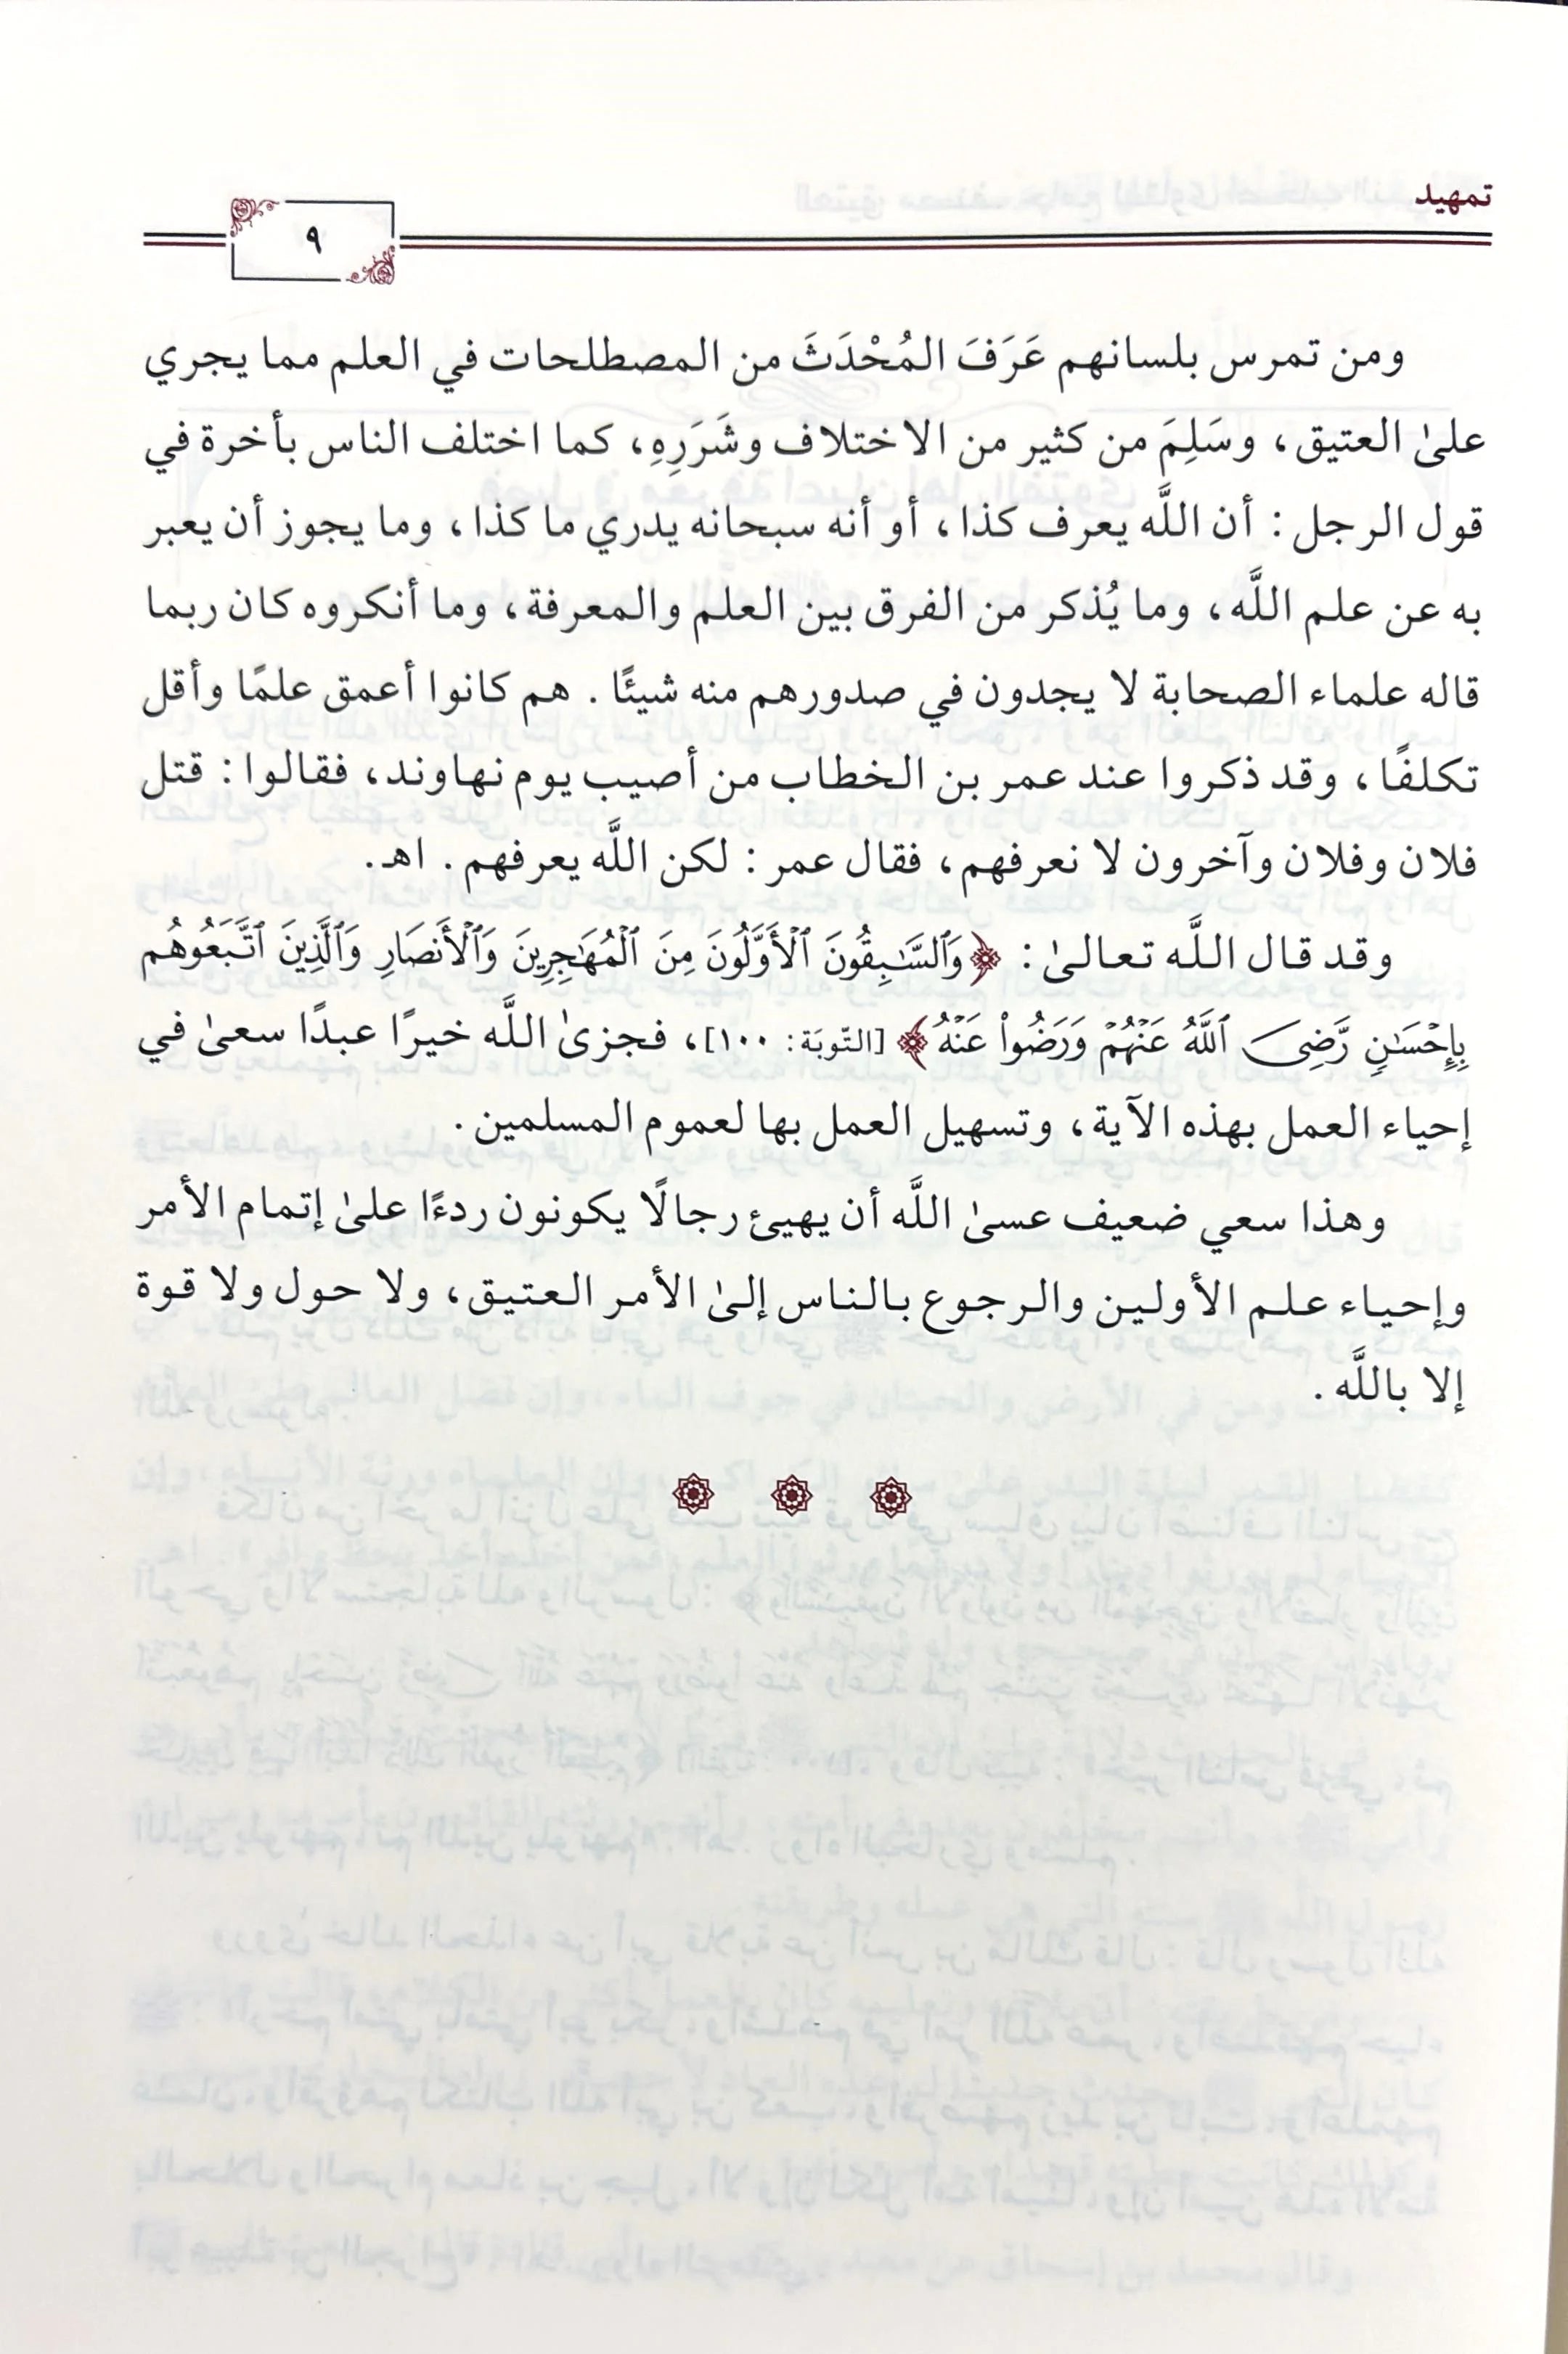 تمهيد
٩
ومن تمرس بلسانهم عَرَفَ المُحْدَثَ من المصطلحات في العلم مما يجري
علىٰ العتيق، وسَلِمَ من كثير من الاختلاف وشَرَرِهِ، كما اختلف الناس بأخرة في
قول الرجل: أن اللَّه يعرف كذا، أو أنه سبحانه يدري ما كذا، وما يجوز أن يعبر
به عن علم اللَّه، وما يُذكر من الفرق بين العلم والمعرفة، وما أنكروه كان ربما
قاله علماء الصحابة لا يجدون في صدورهم منه شيئًا. هم كانوا أعمق علمًا وأقل
تكلفًا، وقد ذكروا عند عمر بن الخطاب من أصيب يوم نهاوند، فقالوا: قتل
فلان وفلان وآخرون لا نعرفهم، فقال عمر: لكن اللَّه يعرفهم. اهـ.
وقد قال اللَّه تعالىٰ: ﴿وَٱلسَّٰبِقُونَ ٱلْأَوَّلُونَ مِنَ ٱلْمُهَٰجِرِينَ وَٱلْأَنصَارِ وَٱلَّذِينَ ٱتَّبَعُوهُم
بِإِحْسَٰنٍ رَّضِىَ ٱللَّهُ عَنْهُمْ وَرَضُوا۟ عَنْهُ﴾ [التّوبَة: ١٠٠]، فجزىٰ اللَّه خيرًا عبدًا سعىٰ في
إحياء العمل بهذه الآية، وتسهيل العمل بها لعموم المسلمين.
وهذا سعي ضعيف عسىٰ اللَّه أن يهيئ رجالًا يكونون ردءًا علىٰ إتمام الأمر
وإحياء علم الأولين والرجوع بالناس إلىٰ الأمر العتيق، ولا حول ولا قوة
إلا باللَّه.